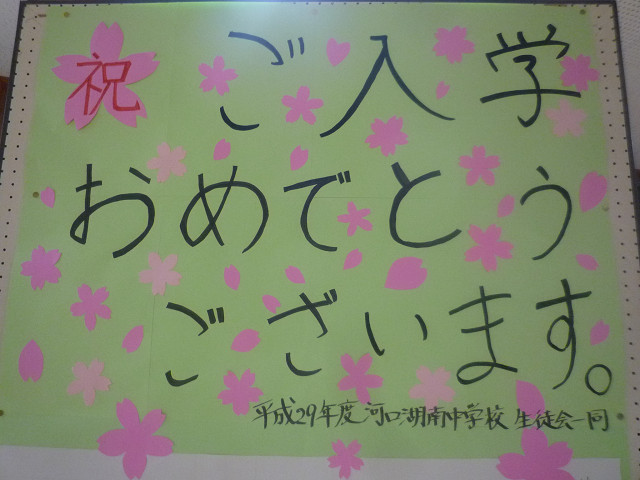 祝 ご入学
おめでとう
ございます。
平成29年度 河口湖南中学校 生徒会一同